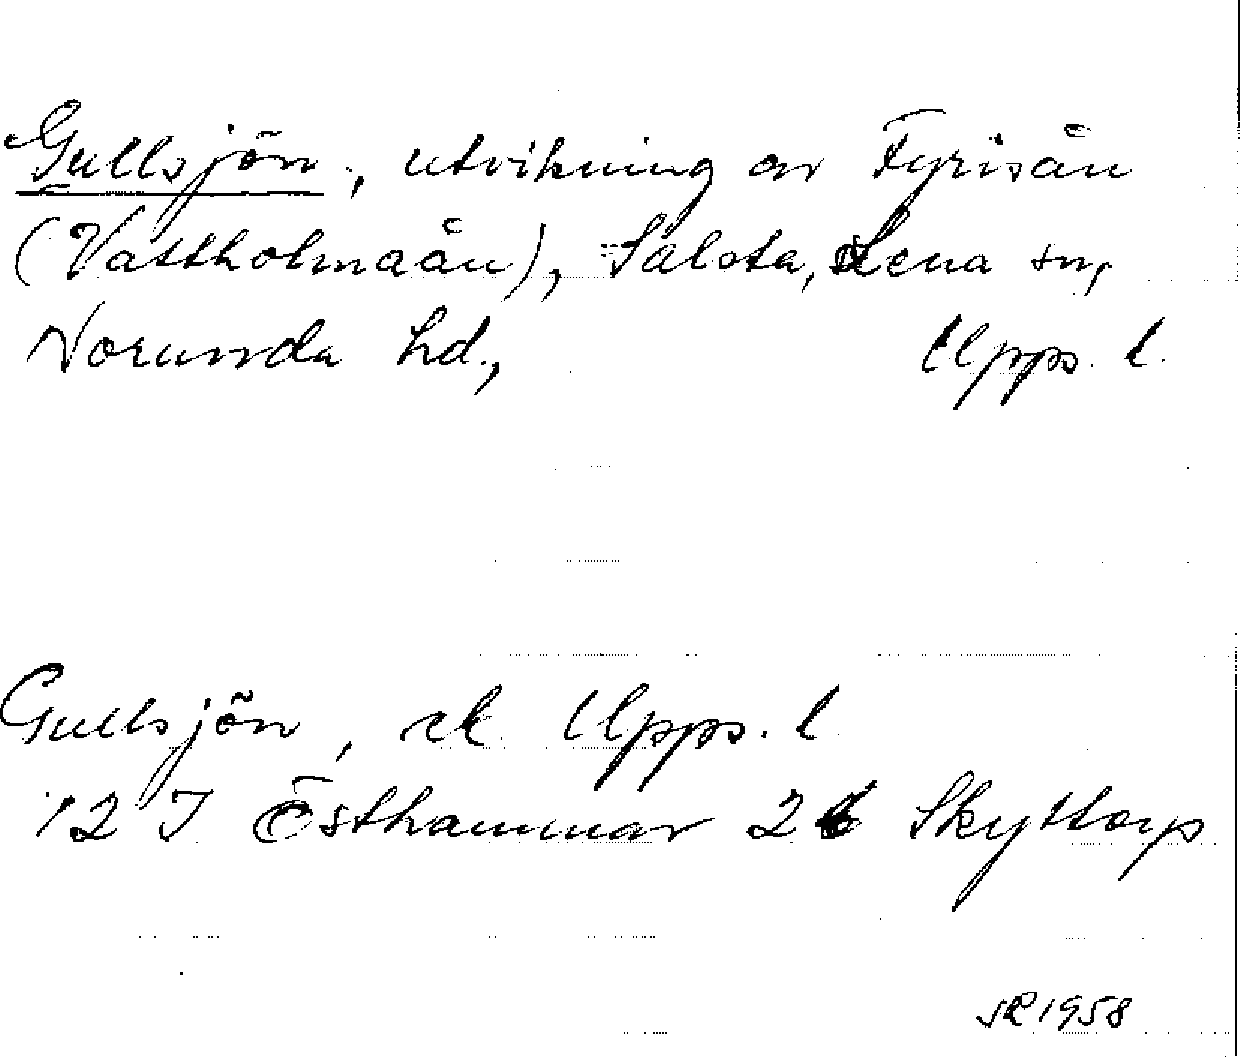 Gullsjön, utvikning av Fyrisån
(Vattholmaån), Salsta, Lena sn,
Norunda hd., Upps. l.
Gullsjön, ek Upps. l
12 I Östhammar 2 b Skyttorp
SR 1958